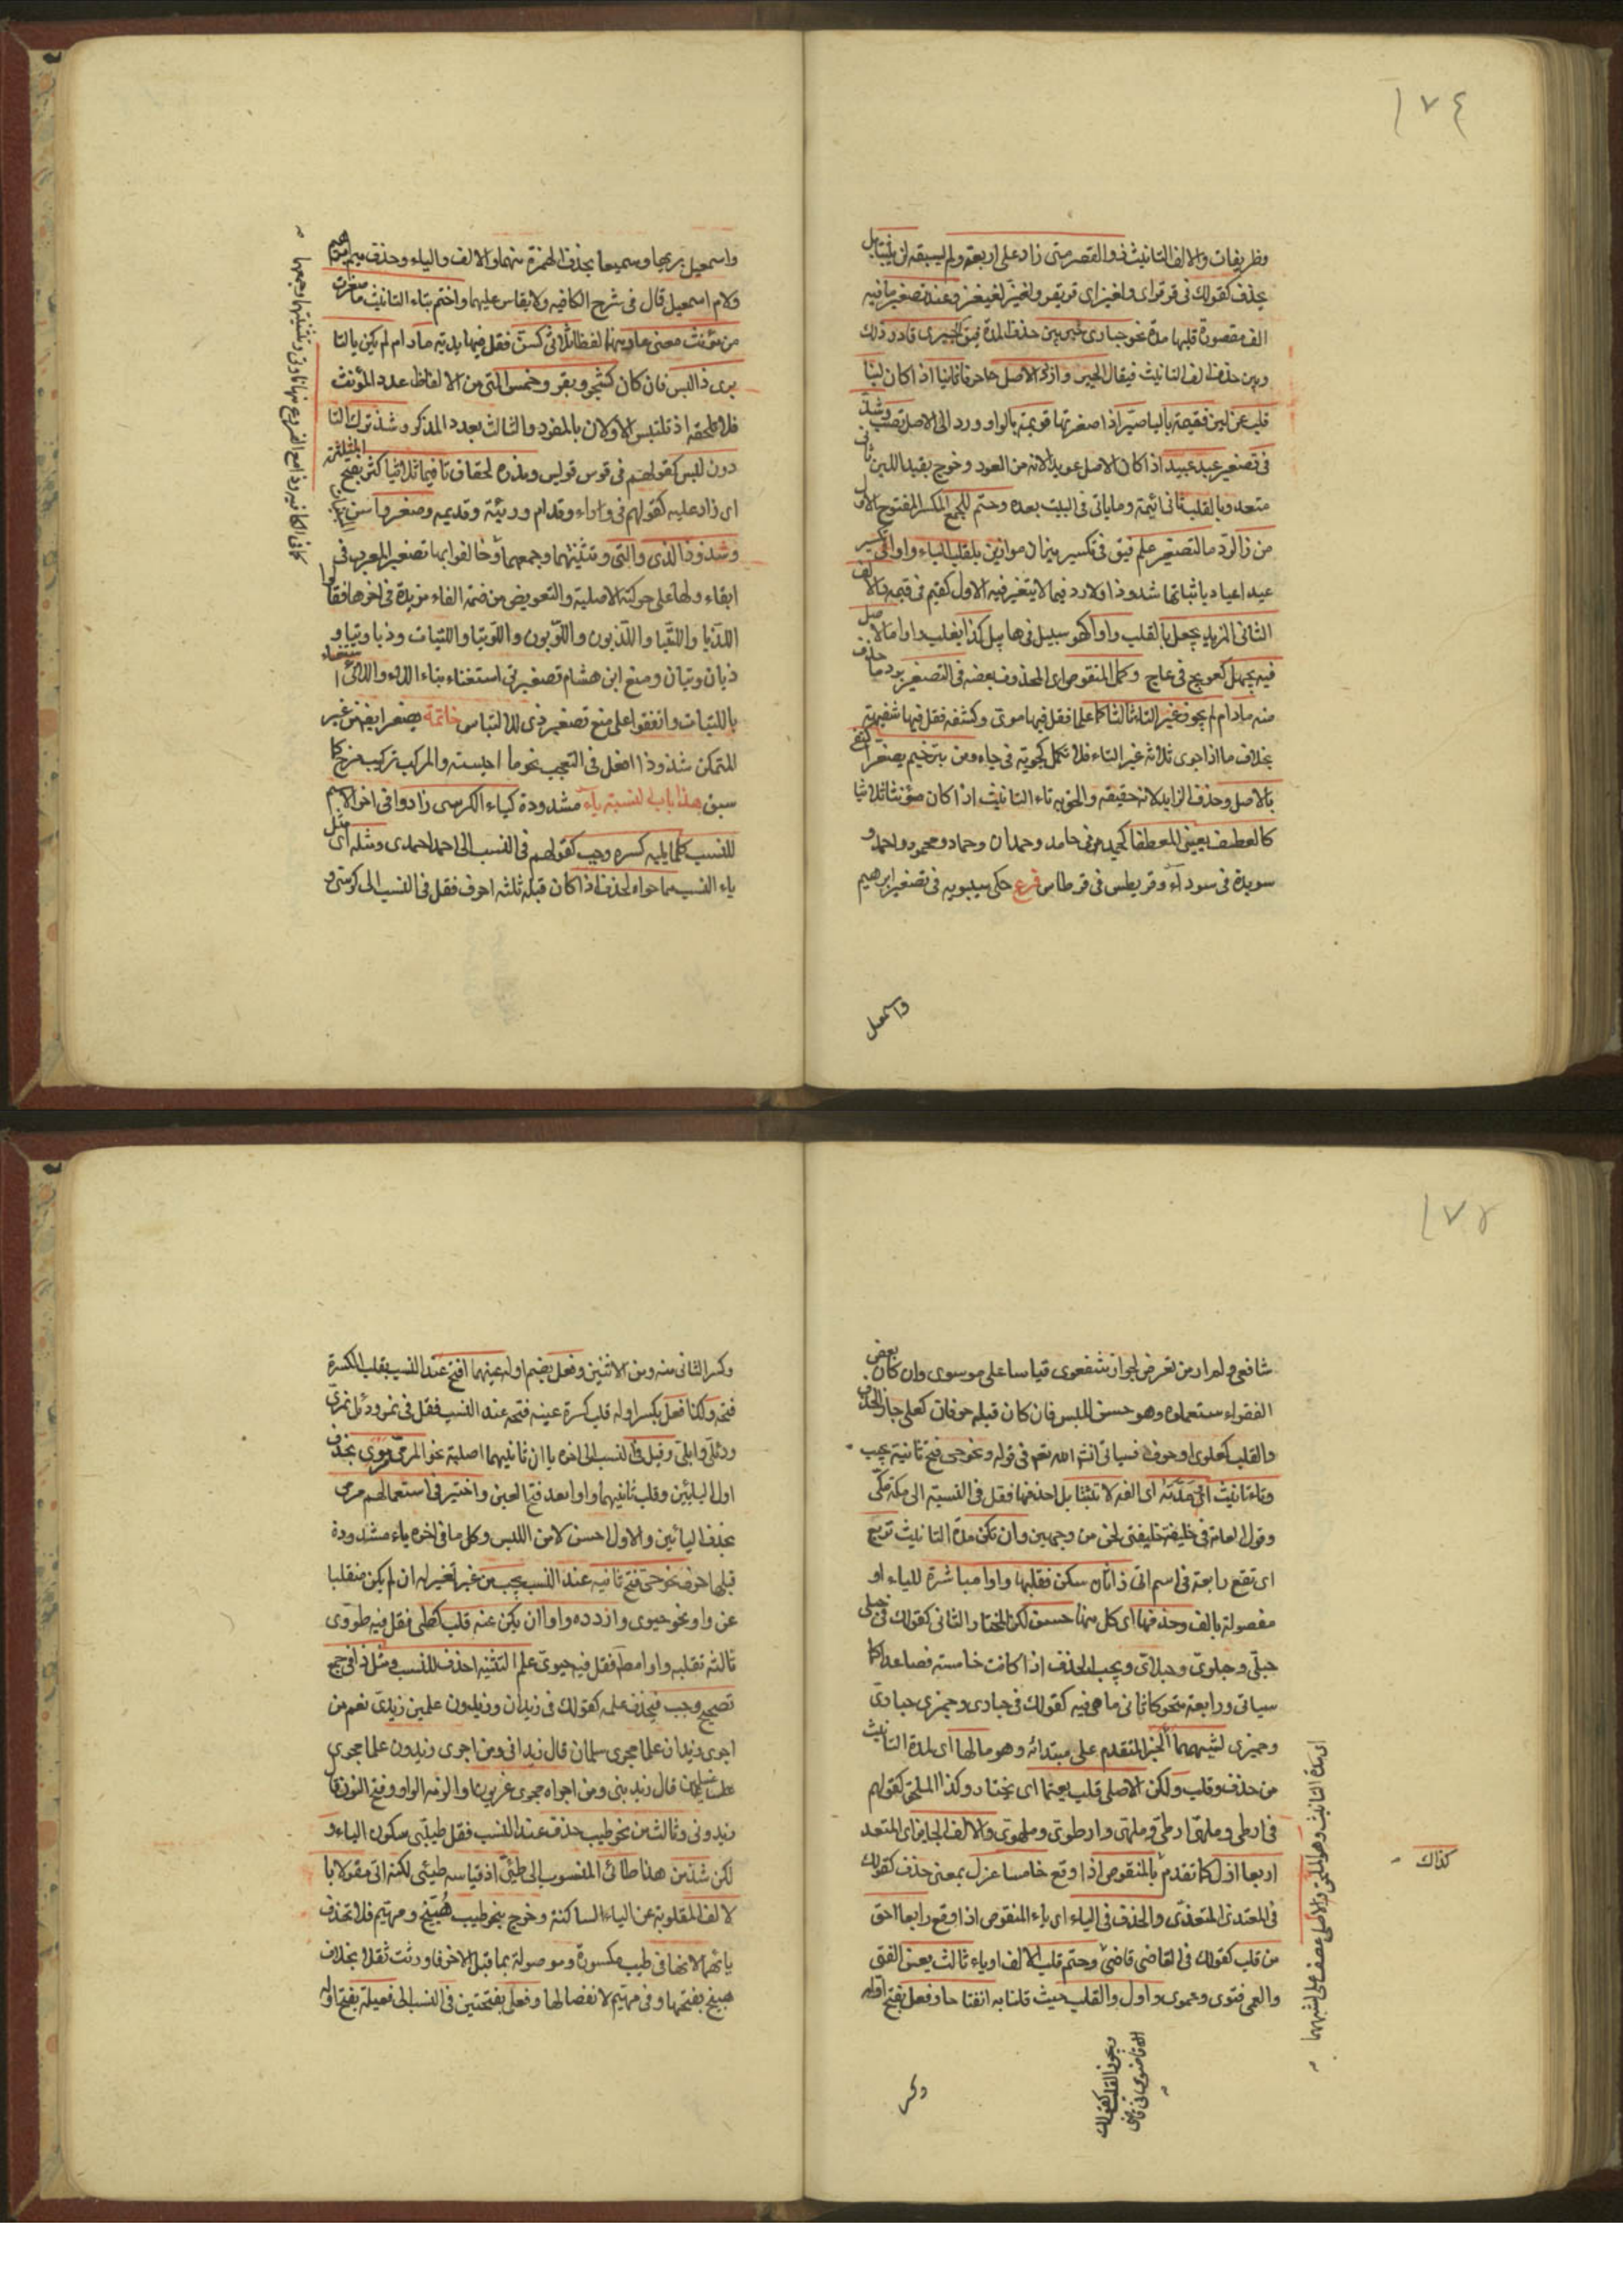 ١٧٤
وظريفات والالف التانيث ذو القصر متى زاد على اربعة ولم يسبقه لن يثبتا بل
يحذف كقولك في قرقرى ولغيزى قريقر ولغيغز وعند تصغير ما فيه
الف مقصورة قبلها مدة نحو حبارى خير بين حذف المدة فيق الحبيرى فادر وذلك
وبين حذف الف التانيث فيقال الحبير واردد لاصل حاحرفا ثانيا اذا كان لينا
قلب عن لين فقيمة بالياء صير اذا صغرتها قويمة بالواو ورد الى الاصل تصب وشذ
في تصغير عيد عبيد اذا كان الاصل عويد لانه من العود وخرج بقيد اللين ثاني
متعد وبالقلب ثاني ائيمة وما ياتي في البيت بعده وحتم للجمع المكسر المفتوح الاول
من ذا الرد ما لتصغير علم فيق في تكسير ميزان موازين بقلب الياء واوا في تكسير
عيد اعياد باثباتها شذوذا ولا رد فيما لا يتغير فيه الاول كقيم في قيمة والالف
الثاني المزيد يجعل بالقلب واوا كهو يبيل في هابيل كذا يقلب واوا ما الاصل
فيه يجهل كعويج في عاج وكمل المنقوص اى المحذوف بعضه في التصغير برد ما حذف
منه مادام لم يحو غير التاء ثالثا كما علما فقل فيها موى وكشفه فقل فيها شفيهة
بخلاف ما اذا حوى ثلاثة غير التاء فلا تكمل كجويه في جاه ومن بترخيم يصغر اكتفى
بالاصل وحذف الزايد لانه حقيقة والحق به تاء التانيث اذا كان مؤنثا ثلاثيا
كالعطيف يعني المعطفا كحميد في حامد وحمدان وحماد ومحمود واحمد و
سويدة في سوداء وقريطس في قرطاس فرع حكى سيبويه في تصغير ابرهيم
واسمعيل
واسمعيل بريها وسميعا بحذف الهمزة منهما والالف والياء وحذف ميم ابرهيم
ولام اسمعيل قال في شرح الكافيه ولا يقاس عليهما واختم بتاء التانيث ما صغرت
من مؤنث معنى عار منها لفظا ثلاثي كسن فقل فيها يدية مادام لم يكن بالتا
يرى ذا لبس فان كان كشجر وبقر وخمس التي من الالفاظ عدد المؤنث
فلا تلحقه اذ تلتبس الاولان بالمفرد والثالث بعدد المذكر وشذ ترك التا
دون لبس كقولهم في قوس قويس وندر لحاق تا فيما ثلاثيا كثر بفتح المثلثة
اى زاد عليه كقولهم في وراء وقدام وريئة وقديمة وصغروا من المبنيات
وشذوذا الذي والتي وتثنيتهما وجمعهما وخالفوا بها تصغير المعرب في
ابقاء ولها على حركته الاصلية والتعويض من ضمة الفاء مزيدة في اخرها فقالوا
اللذيا واللتيا واللذيون واللويون واللويتا واللتيات وذيا وتيا و
ذيان وتيان ومنع ابن هشام تصغير تي استغناء بتاء اللاء واللائي استغناء
باللتيات واتفقوا على منع تصغير ذي للالتباس خاتمة يصغر ايضا من غير
المتمكن شذوذا افعل في التعجب نحو ما احيسنه والمركب تركيب مزج كما
سبق هذا باب النسبة ياء مشددة كياء الكرسي زادوا في اخر الاسم
للنسب كلما يليه كسره وجب كقولهم في النسب الى احمد احمدى ومثله اى مثل
ياء النسب مما حواه احذف اذا كان قبله ثلثه احرف فقل في النسب الى كرسي و
١٧٥
شافعي ولم ار من تعرض لجواز شفعوى قياسا على موسوى وان كان بعض
الفقهاء استعملوه وهو حسن للبس فان كان قبله حرفان كعلي جاز الحذف
والقلب كعلوى او حرف فسياتي انشاء الله تعم في قوله ونحو حي فتح ثانية يجب
وتاء تانيث او مدته اى الفه لا تثبتا بل احذفها فقل في النسبة الى مكة مكي
وقول العامة في خليفة خليفتي لحن من وجهين وان تكن مدة التانيث تربع
اى تقع رابعة في اسم اتى ذا ثان سكن فقلبها واوا مباشرة للياء او
مفصولة بالف وحذفها اى كل منهما حسن لكن المختار الثاني كقولك في حبلى
حبلي وحبلوي وحبلاوي ويجب الحذف اذا كانت خامسة فصاعدا كما
سياتي ورابعة متحركا ثاني ما هي فيه كقولك في حبارى وجمزى حبارى
وجمزى لشبهها الخبر المتقدم على مبتدائه وهو ما لها اى لمدة التانيث
من حذف وقلب ولكن الاصلى قلب يعتما اى يختار وكذا الملحق كقولهم
في ارطى وملهى ارطي وملهي وارطوي وملهوي والالف الجايز اى المتعد
اربعا ازل كما تقدم بالمنقوص اذا وقع خامسا عزل بمعنى حذف كقولك
في المعتدى المتعدي والحذف في الياء اى ياء المنقوص اذا وقع رابعا احق
من قلب كقولك في القاضي قاضي وحتم قلب الالف اوياء ثالث يعن الفتى
والعمى فتوى وعموى واول ذا القلب حيث قلنا به انفتا حا وفعل بفتح اوله
اى مدة التانيث وهو الملحق والاصلى عطف على لشبهها
كذاك
ويجوز القلب كقولك
وكسر
وكسر الثاني منه ومن الاثنين وفعل بضم اوله عينهما افتح عند النسب بقلب الكسرة
فتحة ولكنا فعل بكسر اوله قلب كسرة عينه فتحه عند النسب فقل في نمر ودئل نمرى
ودئلي وابلي وقيل في النسب الى اخره يا ان ثانيهما اصلية نحو المرمى مرموى بحذف
اول اليائين وقلب ثانيهما واوا بعد فتح العين واختير في استعمالهم مرمى
بحذف اليائين والاول احسن لا من اللبس وكل ما في اخره ياء مشددة
قبلها حرف نحو حي فتح ثانيه عند النسب يجب من غير تغير له ان لم يكن منقلبا
عن واو نحو حيوى واردده واوا ان يكن عنه قلب كطى فقل فيه طووى
ثالثه تقلبه واوا مطا فقل فيه حيوى علم التثنية احذف للنسب ومثل ذا في جمع
تصحيح وجب فيحذف علمه كقولك في زيدان وزيدون علمين زيدى نعم من
اجرى زيدان علما مجرى سلمان قال زيداني ومن اجرى زيدون علما مجرى
غسلين قال زيديني ومن اجراه مجرى عربون والزمه الواو وفتح النون قال
زيدوني وثالث من نحو طيب حذف عند النسب فقل طيبي بسكون الياء و
لكن شذ من هذا طائي المنسوب الى طيئ اذ قياسه طيئي لكنه اتى مقولا با
لالف المقلوبة عن الياء الساكنة وخرج بنحو طيب هبيخ ومهيم فلا تحذف
يائهما لانها في طيب مكسورة وموصولة بما قبل الاخر فاورثت ثقلا بخلاف
هبيخ بفتحها وفي مهيم لانفصالها وفعلي بفتحتين في النسب الى فعيلة بفتح اوله